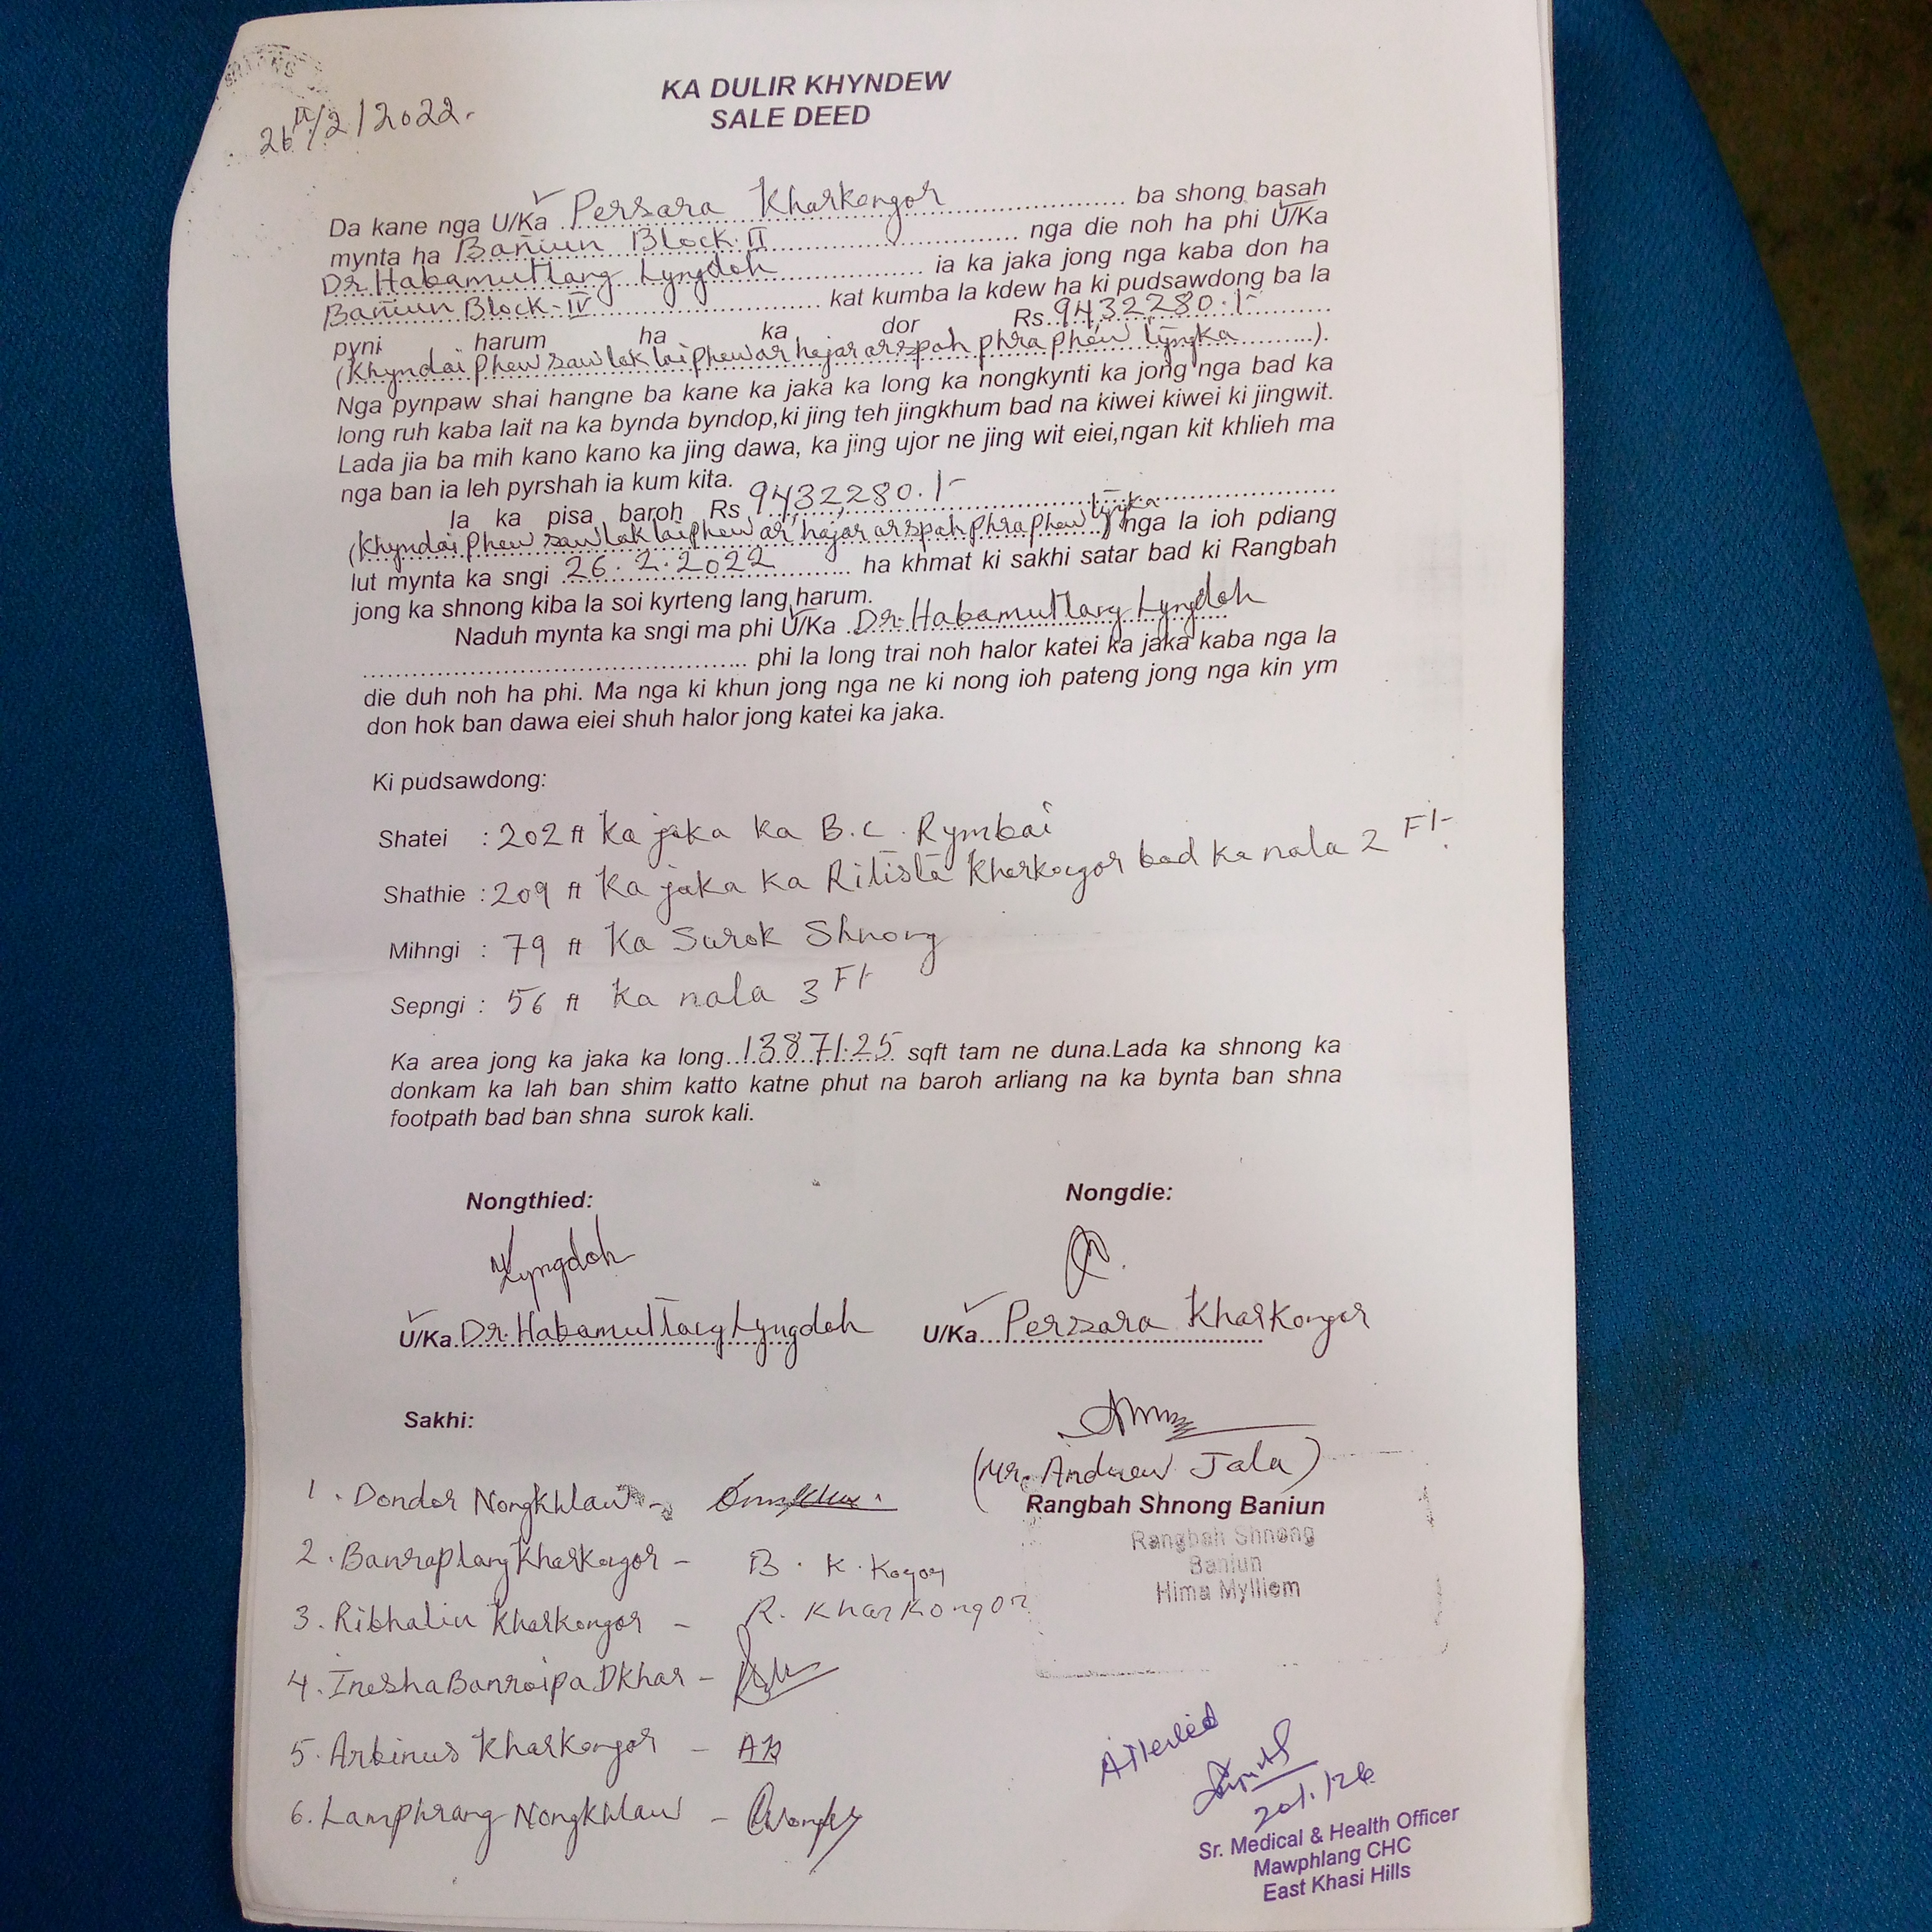 26th/2/2022.
KA DULIR KHYNDEW
SALE DEED
Da kane nga U/Ka Persara Kharkongor ba shong basah
mynta ha Baniun Block-II nga die noh ha phi U/Ka
Dr. Habamutlang Lyngdoh ia ka jaka jong nga kaba don ha
Baniun Block-IV kat kumba la kdew ha ki pudsawdong ba la
pyni harum ha ka dor Rs. 9432280./-
(Khyndai phew saw lak lai phew ar hajar arspah phra phew tyngka).
Nga pynpaw shai hangne ba kane ka jaka ka long ka nongkynti ka jong nga bad ka
long ruh kaba lait na ka bynda byndop,ki jing teh jingkhum bad na kiwei kiwei ki jingwit.
Lada jia ba mih kano kano ka jing dawa, ka jing ujor ne jing wit eiei,ngan kit khlieh ma
nga ban ia leh pyrshah ia kum kita.
Ia ka pisa baroh Rs 9432280./-
(Khyndai phew saw lak lai phew ar hajar arspah phra phew tyngka) nga la ioh pdiang
lut mynta ka sngi 26.2.2022 ha khmat ki sakhi satar bad ki Rangbah
jong ka shnong kiba la soi kyrteng lang harum.
Naduh mynta ka sngi ma phi U/Ka Dr. Habamutlang Lyngdoh
phi la long trai noh halor katei ka jaka kaba nga la
die duh noh ha phi. Ma nga ki khun jong nga ne ki nong ioh pateng jong nga kin ym
don hok ban dawa eiei shuh halor jong katei ka jaka.
Ki pudsawdong:
Shatei : 202 ft Ka jaka ka B.C. Rymbai
Shathie : 209 ft Ka jaka ka Ritista Kharkongor bad ka nala 2 Ft.
Mihngi : 79 ft Ka Surok Shnong
Sepngi : 56 ft Ka nala 3 Ft
Ka area jong ka jaka ka long 13871.25 sqft tam ne duna.Lada ka shnong ka
donkam ka lah ban shim katto katne phut na baroh arliang na ka bynta ban shna
footpath bad ban shna surok kali.
Nongthied: Nongdie:
Lyngdoh
U/Ka Dr. Habamutlang Lyngdoh U/Ka Persara Kharkongor
Sakhi:
(Mr. Andrew Jala)
Rangbah Shnong Baniun
Rangbah Shnong
Baniun
Hima Mylliem
1. Dondor Nongkhlaw -
2. Banraplang Kharkongor - B. K. Kogor
3. Ribhaliu Kharkongor - R. Kharkongor
4. Inesha Banroipa Dkhar -
5. Arbinus Kharkongor - AK
6. Lamphrang Nongkhlaw -
Attested
Sr. Medical & Health Officer
Mawphlang CHC
East Khasi Hills